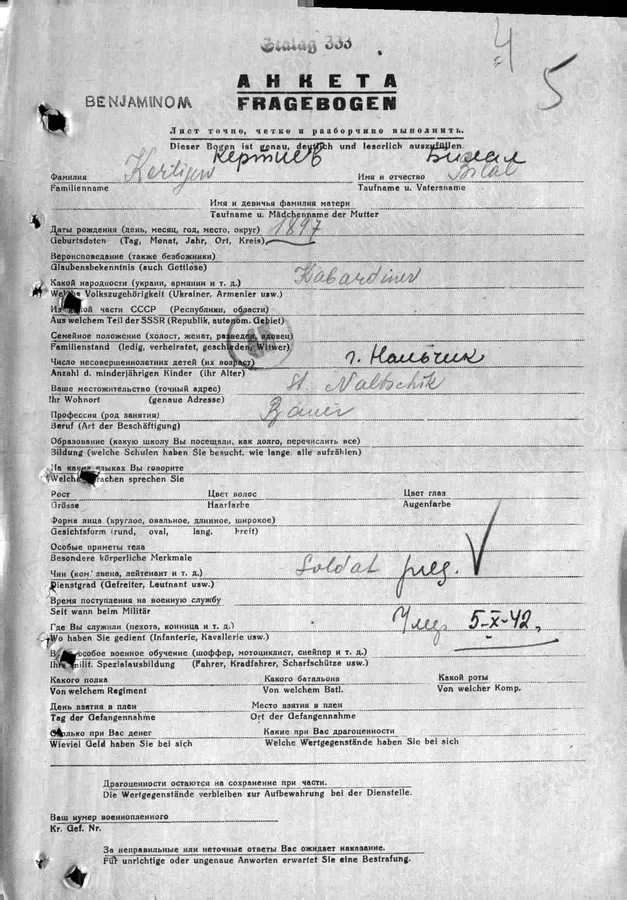 Stalag 333
4
5
АНКЕТА
BENJAMINOW
FRAGEBOGEN
Лист точно, четко и разборчиво выполнить.
Dieser Bogen ist genau, deutlich und leserlich auszufüllen.
Кертиев Билал
Kertijew Bilal
Фамилия Имя и отчество
Familienname Taufname u. Vatersname
Имя и девичья фамилия матери
Taufname u. Mädchenname der Mutter
Даты рождения (день, месяц, год, место, округ) 1897
Geburtsdaten (Tag, Monat, Jahr, Ort, Kreis)
Вероисповедание (также безбожники)
Glaubensbekenntnis (auch Gottlose)
Какой народности (украин, армянин и т. д.) Kabardiner
Welche Volkszugehörigkeit (Ukrainer, Armenier usw.)
Из какой части СССР (Республики, области)
Aus welchem Teil der SSSR (Republik, autonom. Gebiet)
Семейное положение (холост, женат, разведен, вдовец)
Familienstand (ledig, verheiratet, geschieden, Witwer)
Число несовершеннолетних детей (их возраст) г. Нальчик
Anzahl d. minderjährigen Kinder (ihr Alter)
Ваше местожительство (точный адрес) St. Naltschik
Ihr Wohnort (genaue Adresse)
Профессия (род занятия) Bauer
Beruf (Art der Beschäftigung)
Образование (какую школу Вы посещали, как долго, перечислить все)
Bildung (welche Schulen haben Sie besucht, wie lange, alle aufzählen)
На каких языках Вы говорите
Welche Sprachen sprechen Sie
Рост Цвет волос Цвет глаз
Grösse Haarfarbe Augenfarbe
Форма лица (круглое, овальное, длинное, широкое)
Gesichtsform (rund, oval, lang, breit)
Особые приметы тела
Besondere körperliche Merkmale
Чин (ком. звена, лейтенант и т. д.) Soldat ряд.
Dienstgrad (Gefreiter, Leutnant usw.)
Время поступления на военную службу
Seit wann beim Militär
Где Вы служили (пехота, конница и т. д.) Умер 5-X-42,
Wo haben Sie gedient (Infanterie, Kavallerie usw.)
Ваше особое военное обучение (шоффер, мотоциклист, снейпер и т. д.)
Ihre milit. Spezialausbildung (Fahrer, Kradfahrer, Scharfschütze usw.)
Какого полка Какого батальона Какой роты
Von welchem Regiment Von welchem Batl. Von welcher Komp.
День взятия в плен Место взятия в плен
Tag der Gefangennahme Ort der Gefangennahme
Сколько при Вас денег Какие при Вас драгоценности
Wieviel Geld haben Sie bei sich Welche Wertgegenstände haben Sie bei sich
Драгоценности остаются на сохранение при части.
Die Wertgegenstände verbleiben zur Aufbewahrung bei der Dienstelle.
Ваш нумер военнопленного
Kr. Gef. Nr.
За неправильные или неточные ответы Вас ожидает наказание.
Für unrichtige oder ungenaue Anworten erwartet Sie eine Bestrafung.